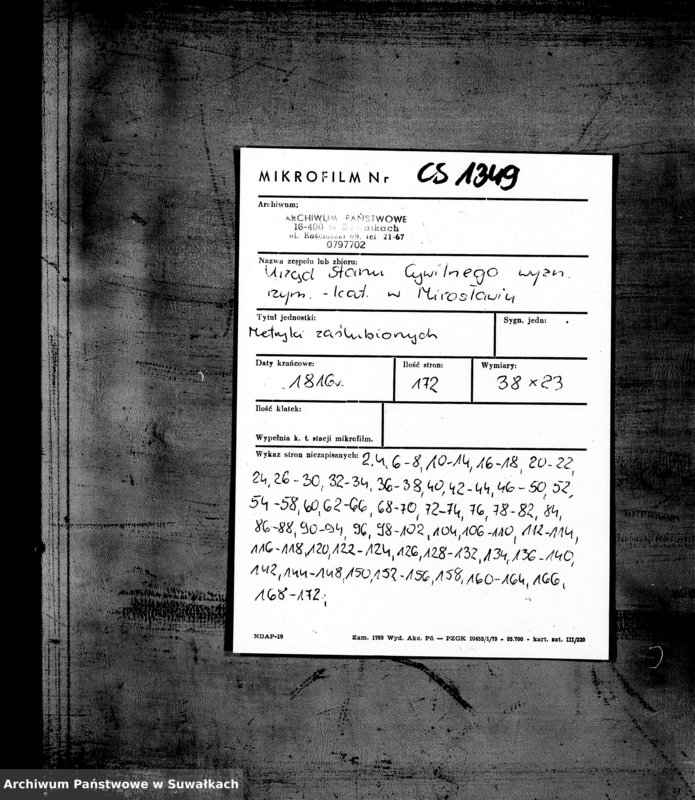 MIKROFILM Nr CS 1349
Archiwum:
ARCHIWUM PAŃSTWOWE
16-400 w Suwałkach
ul. Kościuszki 69, tel 21-67
0797702
Nazwa zespołu lub zbioru:
Urząd Stanu Cywilnego wyzn.
rzym.-kat. w Mirosławiu
Tytuł jednostki:
Sygn. jedn:
Metryki zaślubionych
Daty krańcowe:
Ilość stron:
Wymiary:
1816r.
172
38 x 23
Ilość klatek:
Wypełnia k. t. stacji mikrofilm.
Wykaz stron niezapisanych: 2, 4, 6-8, 10-14, 16-18, 20-22,
24, 26-30, 32-34, 36-38, 40, 42-44, 46-50, 52,
54-58, 60, 62-66, 68-70, 72-74, 76, 78-82, 84,
86-88, 90-94, 96, 98-102, 104, 106-110, 112-114,
116-118, 120, 122-124, 126, 128-132, 134, 136-140,
142, 144-148, 150, 152-156, 158, 160-164, 166,
168-172;
NDAP-10
Zam. 1760 Wyd. Akc. Pń — PZGK 10455/1/79 - 85.700 - kart. sat. III/220
Archiwum Państwowe w Suwałkach